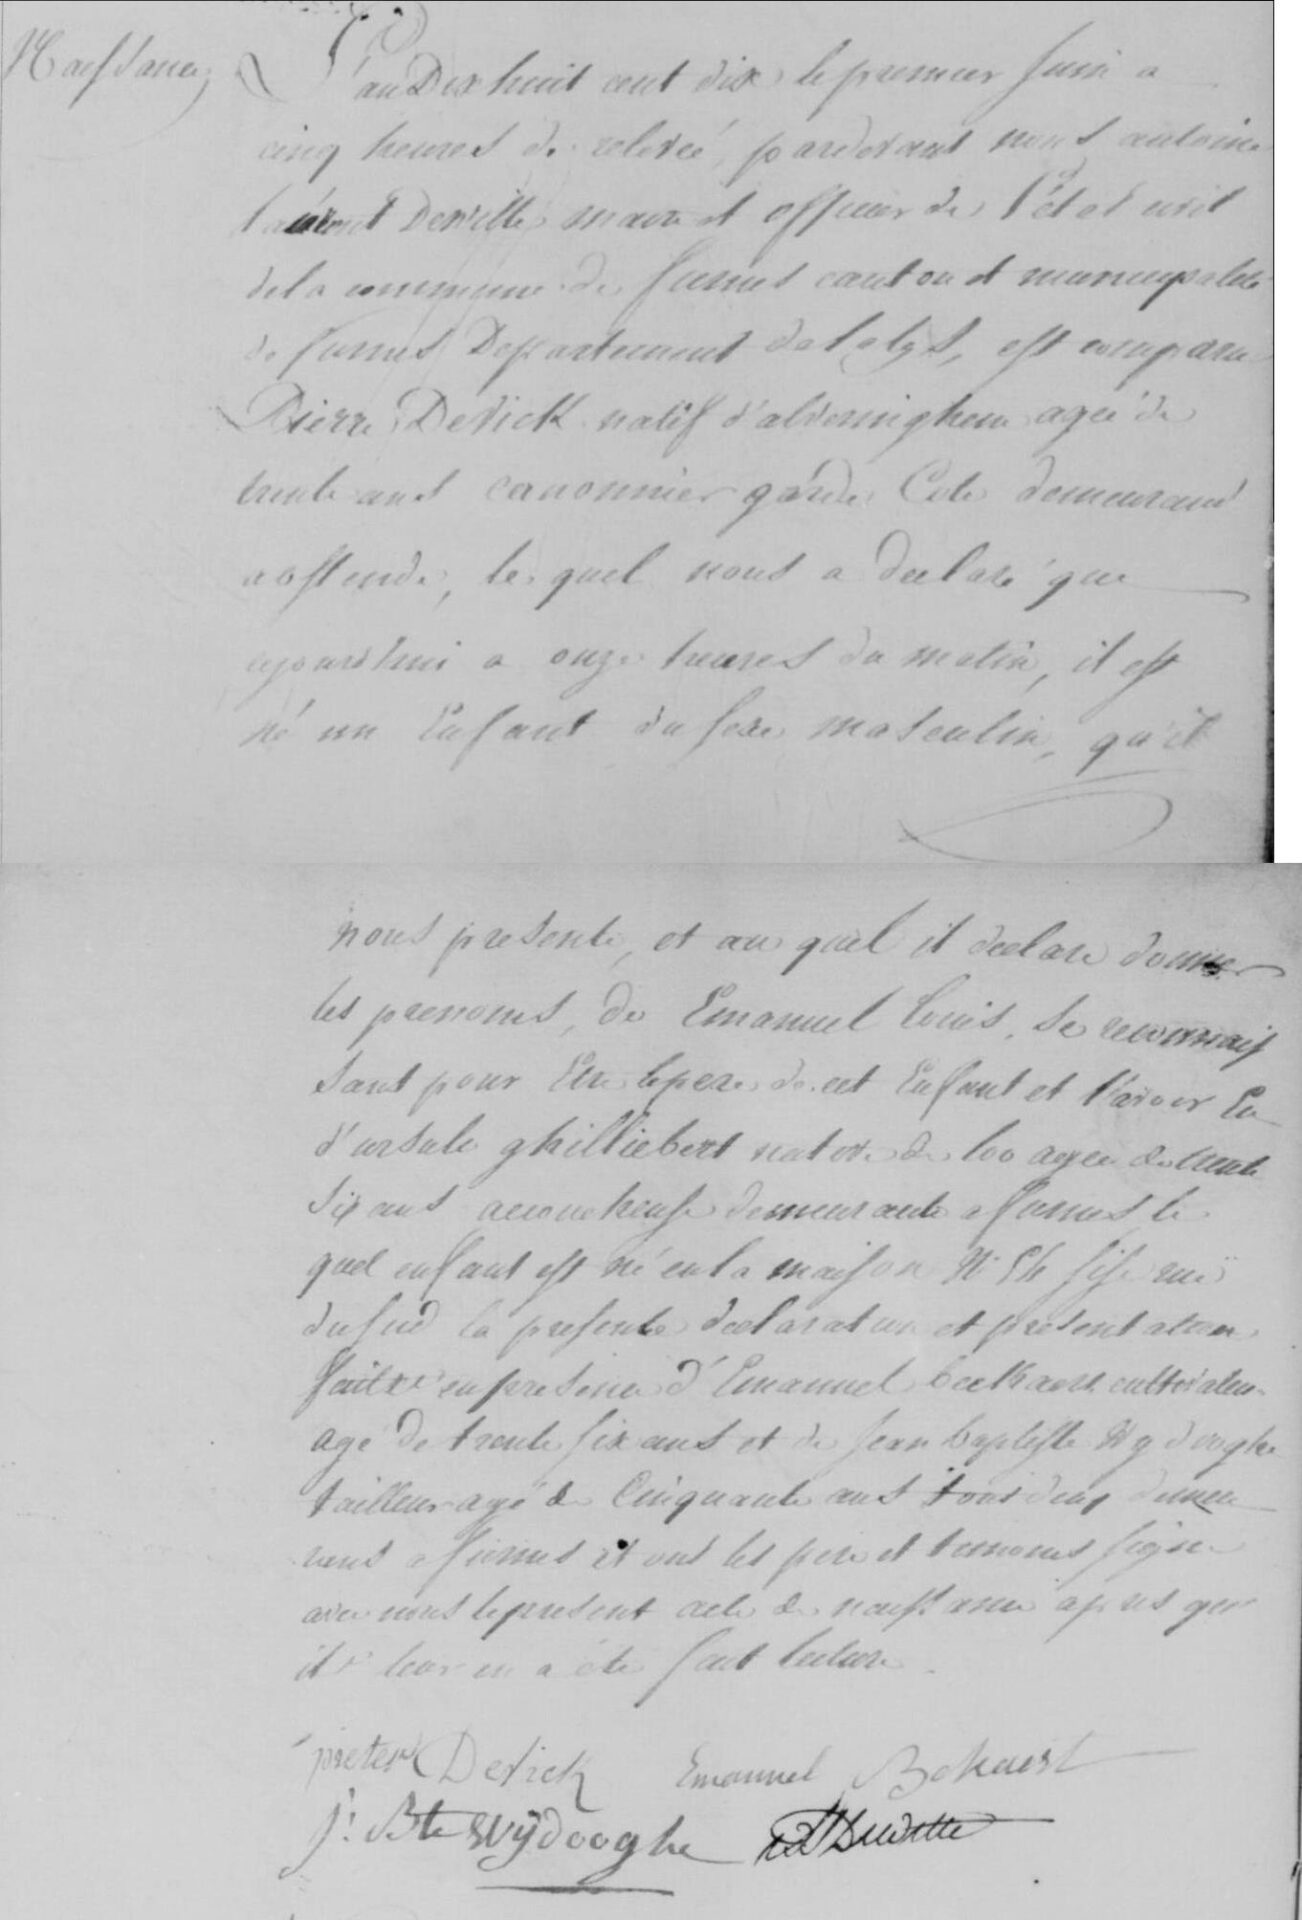 Naissance
L'an Dix huit cent dix le premier Juin a
cinq heures de relevée, pardevant nous antoine
laurent Dewitte maire et officier de l'état civil
de la commune de furnes canton et municipalité
de furnes Departement de la lys, est comparu
Pierre Devick natif d'alveringhem agée de
trente ans canonnier garde Cote demeurant
a ostende, le quel nous a declaré que
ajourdhui a onze heures du matin, il est
né un Enfant du sexe masculin, qu'il
nous presente, et au quel il declare donner
les prenoms, de Emanuel Louis, se reconnais
sant pour Etre le pere de cet Enfant et l'avoir Eu
d'ursule ghilliebert native de loo agee de trente
six ans accoucheuse demeurante a furnes le
quel enfant est né en la maison N: rue
du sud la presente declaration et presentation
faite en presence d'Emanuel beekaert cultivateur
agé de trente six ans et de jean baptiste Wydooghe
tailleur agé de Cinquante ans tous deux demeu
rans a furnes et ont les pere et temoins signe
avec nous le present acte de naissance apres qu
il leur en a éte fait lecture.
pieter Devick Emanuel Bekaert
J: Bte Wydooghe Dewitte